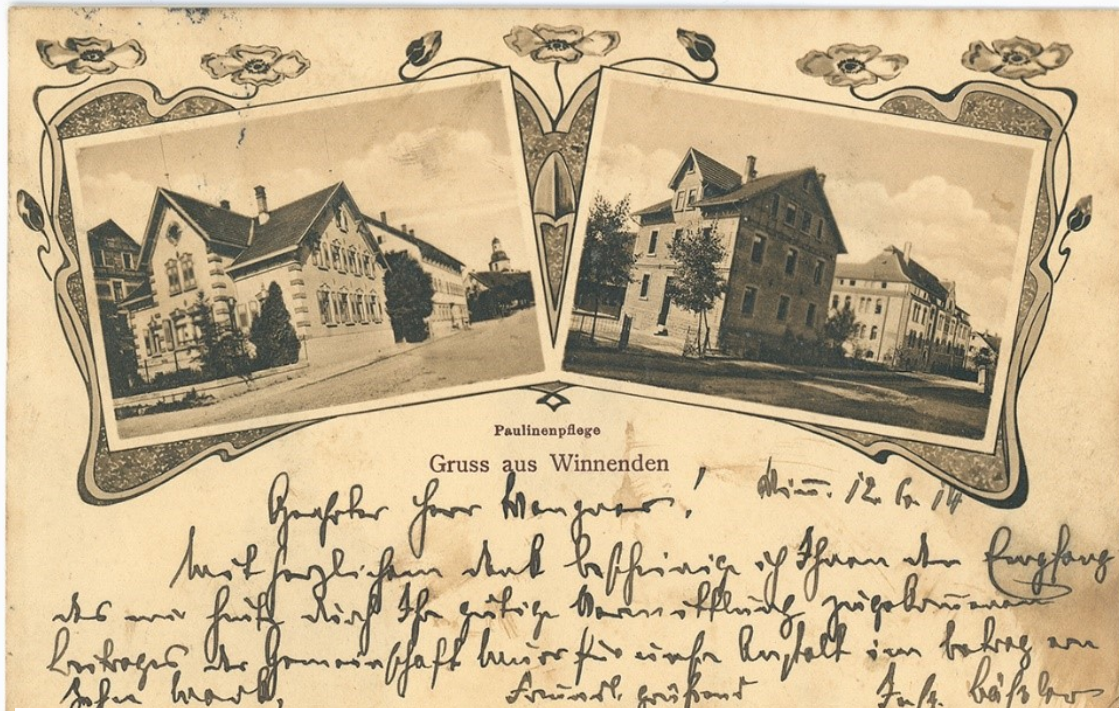 Paulinenpflege
Gruss aus Winnenden
Geehrter Herr Wengner! Winn. 12. 6. 14
Mit herzlichem Dank bescheinige ich Ihnen den Empfang
des mir heute durch Ihre gütige Vermittlung zugekommenen
Beitrages der Gemeinschaft für unsre Anstalt im Betrag von
Zehn Mark. Freundl. grüßend Insp.